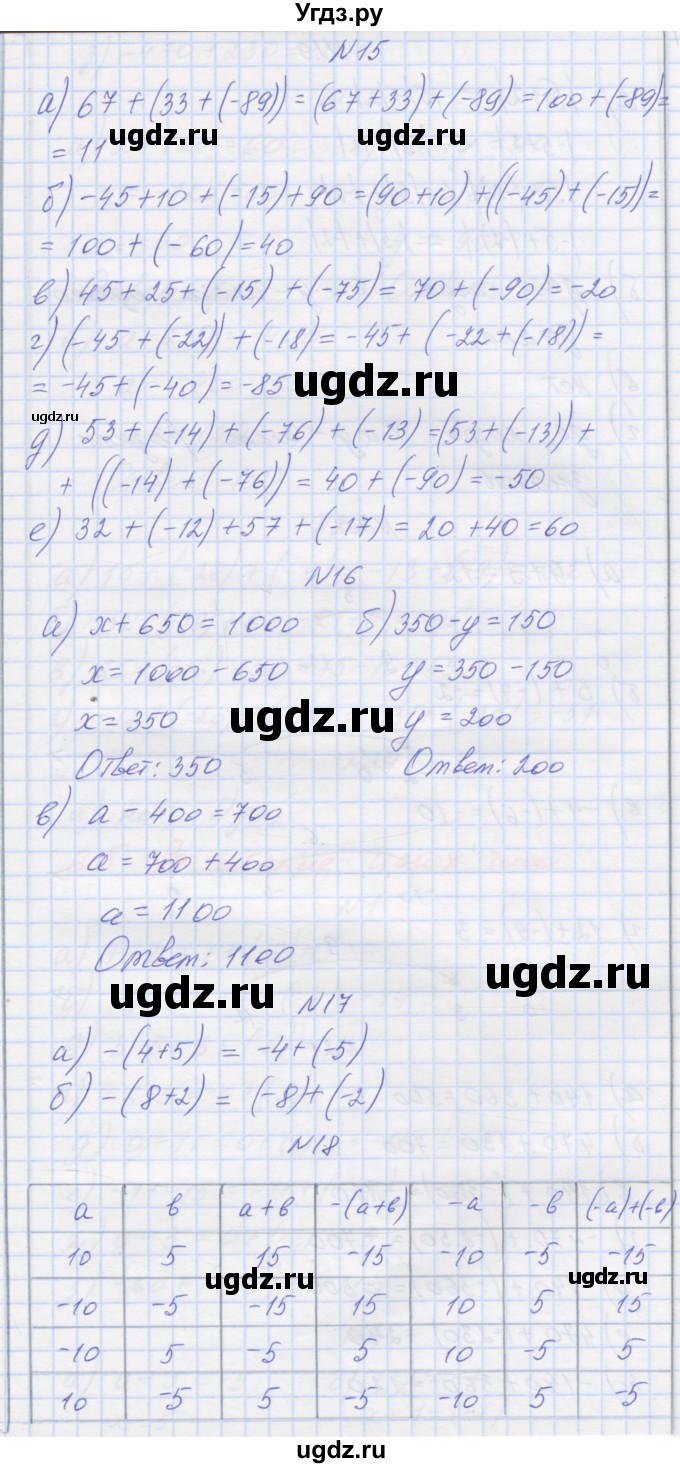 Угдз.ру
N15
а) 67 + (33 + (-89)) = (67 + 33) + (-89) = 100 + (-89) =
= 11
ugdz.ru ugdz.ru
б) -45 + 10 + (-15) + 90 = (90 + 10) + ((-45) + (-15)) =
= 100 + (-60) = 40
в) 45 + 25 + (-15) + (-75) = 70 + (-90) = -20
г) (-45 + (-22)) + (-18) = -45 + (-22 + (-18)) =
= -45 + (-40) = -85
ugdz.ru
ugdz.ru
д) 53 + (-14) + (-76) + (-13) = (53 + (-13)) +
+ ((-14) + (-76)) = 40 + (-90) = -50
е) 32 + (-12) + 57 + (-17) = 20 + 40 = 60
N16
а) x + 650 = 1000 б) 350 - y = 150
x = 1000 - 650 y = 350 - 150
x = 350 y = 200
ugdz.ru
Ответ: 350 Ответ: 200
в) a - 400 = 700
a = 700 + 400
a = 1100
Ответ: 1100
ugdz.ru
ugdz.ru
N17
а) -(4 + 5) = -4 + (-5)
б) -(8 + 2) = (-8) + (-2)
N18
a в a + в -(a + в) -a -в (-a) + (-в)
10 5 15 -15 -10 -5 -15
ugdz.ru ugdz.ru
-10 -5 -15 15 10 5 15
-10 5 -5 5 10 -5 5
10 -5 5 -5 -10 5 -5
ugdz.ru